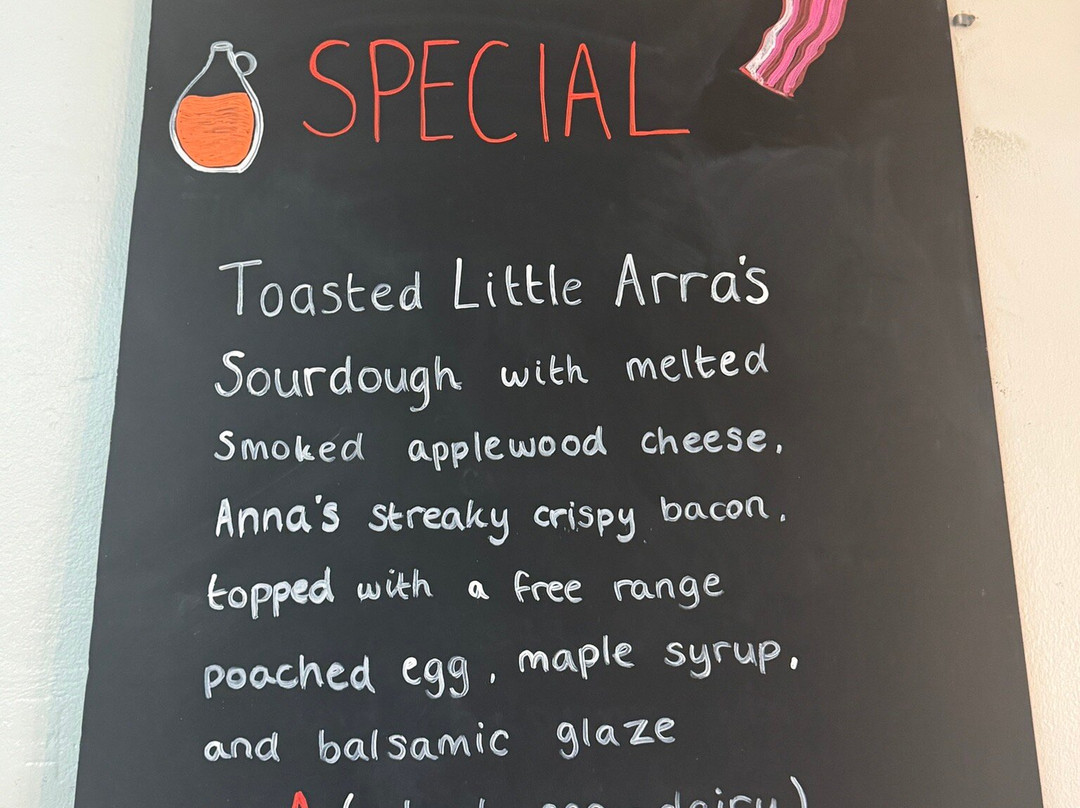 SPECIAL
Toasted Little Arra's
Sourdough with melted
Smoked applewood cheese,
Anna's streaky crispy bacon,
topped with a free range
poached egg, maple syrup,
and balsamic glaze
egg, dairy)